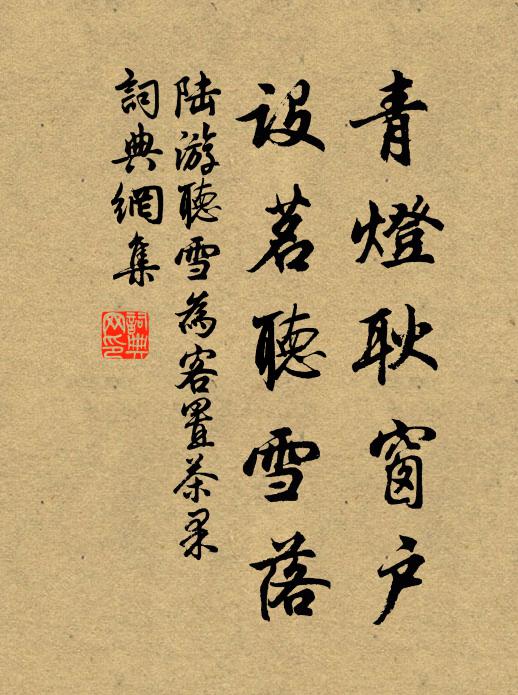 青燈耿窗户
設茗聽雪落
陆游聽雪為客置茶果
詞典網集
詞典
网印